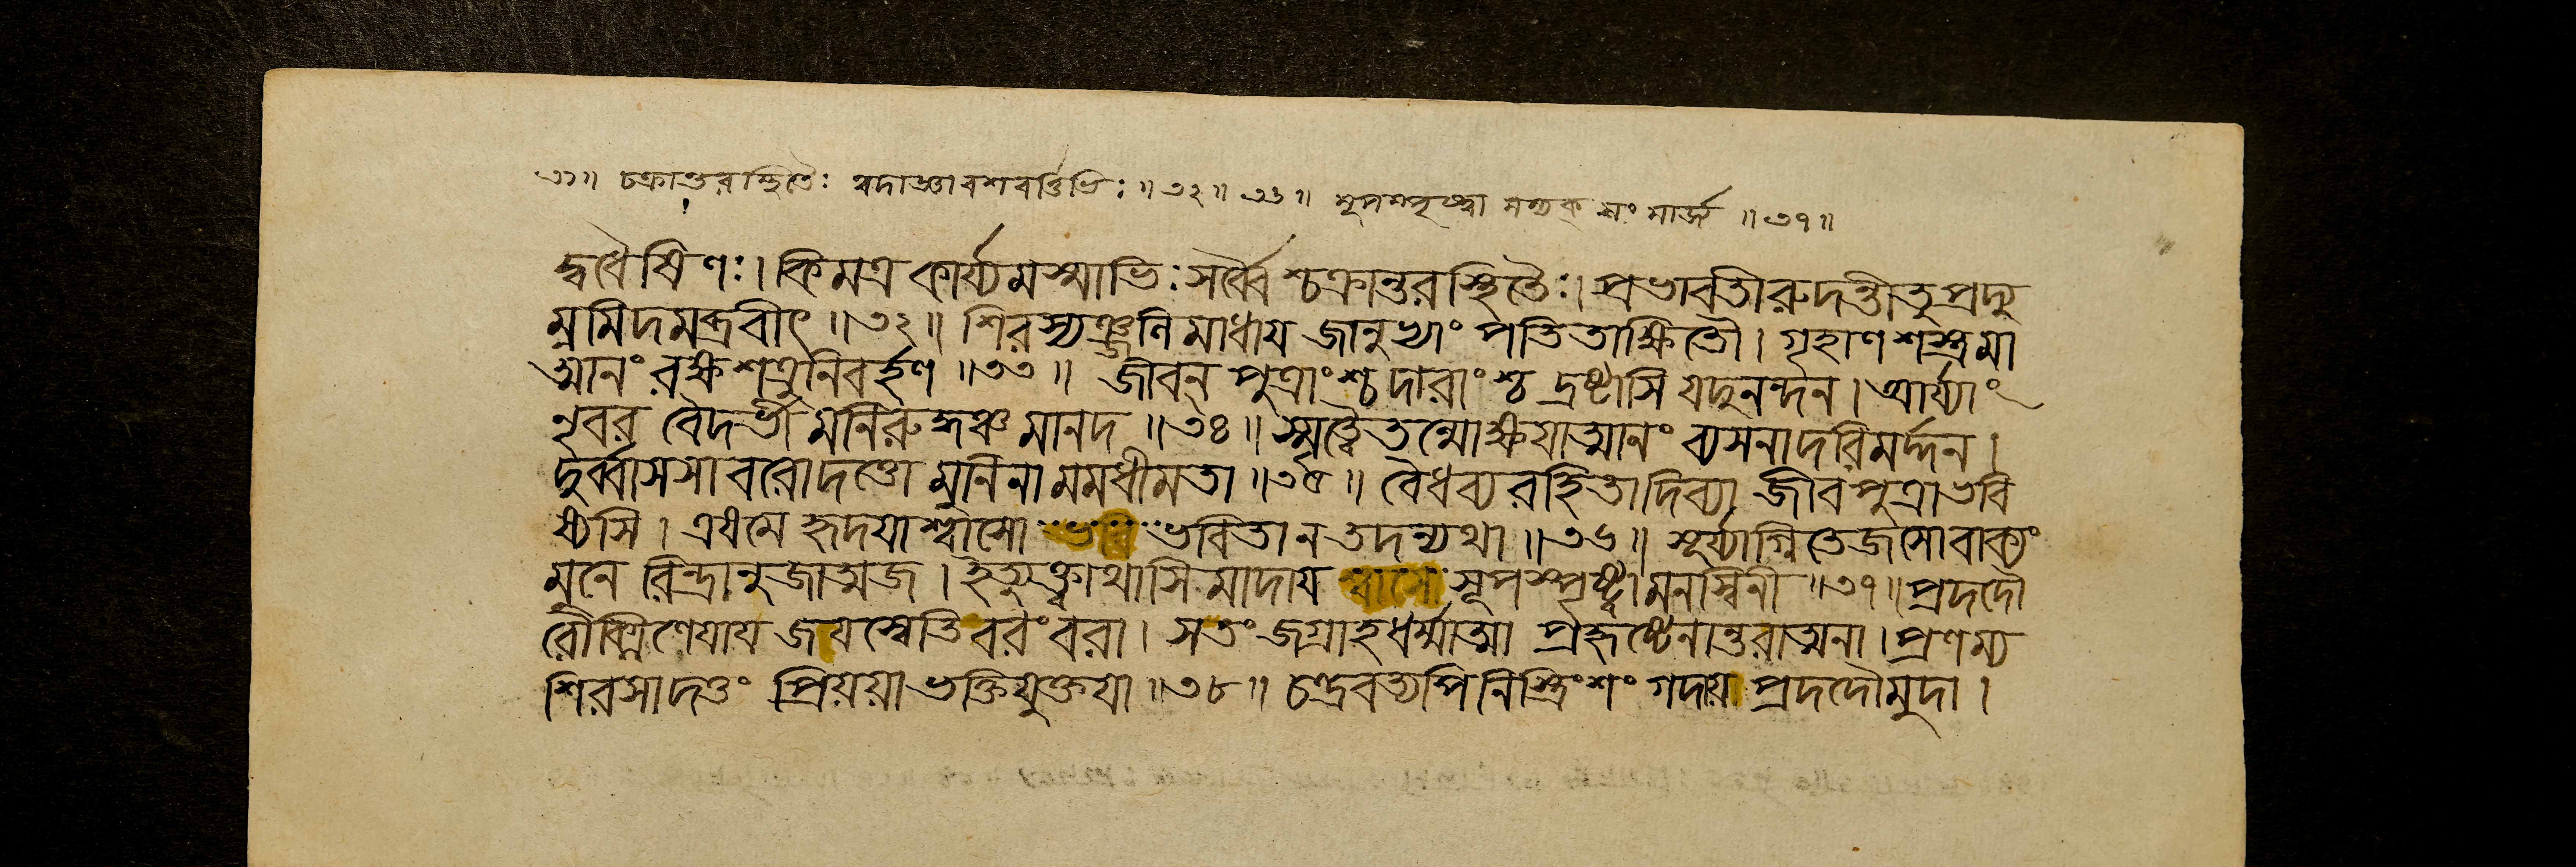 ৩১॥ চক্রান্তরস্থিতৈঃ বদাজ্ঞাবশবর্ত্তিভিঃ॥৩২॥ ৩৬॥ সূপস্পৃষ্ট্বা সম্যক্ সংমার্জ্জ ॥৩৭॥
দ্বধৈষিণঃ। কিমত্র কার্য্যমস্মাভিঃ সর্ব্বৈশ্চক্রান্তরস্থিতৈঃ। প্রভাবতী রুদন্তী তু প্রদ্যু
ম্নমিদমব্রবীৎ ॥৩২॥ শিরস্যঞ্জলিমাধায় জানুভ্যাং পতিতা ক্ষিতৌ। গৃহাণ শস্ত্রমা
ত্মানং রক্ষ শত্রুনিবর্হণ ॥৩৩॥ জীবন্ পুত্রাংশ্চ দারাংশ্চ দ্রষ্টাসি যদুনন্দন। আর্য্যাং
নৃবর বৈদর্ভীমনিরুদ্ধঞ্চ মানদ ॥৩৪॥ স্মৃত্বৈতন্মোক্ষয়াত্মানং ব্যসনাদরিমর্দ্দন।
দুর্ব্বাসসা বরো দত্তো মুনিনা মম ধীমতা ॥৩৫॥ বৈধব্যরহিতা দিব্যা জীবপুত্রা ভবি
ষ্যসি। এষ মে হৃদয়াশ্বাসো ভবি ভবিতা ন তদন্যথা ॥৩৬॥ সূর্য্যাগ্নিতেজসো বাক্যং
মুনেরিন্দ্রানুজাত্মজ। ইত্যুক্ত্বাথাসিমাদায় সূপস্পৃষ্ট্বা মনস্বিনী ॥৩৭॥ প্রদদৌ
রৌক্মিণেয়ায় জয়স্বেতি বরং বরা। স তং জগ্রাহ ধর্ম্মাত্মা প্রহৃষ্টেনান্তরাত্মনা। প্রণম্য
শিরসা দত্তং প্রিয়য়া ভক্তিযুক্তয়া ॥৩৮॥ চন্দ্রবত্যপি নিস্ত্রিংশং গদায় প্রদদৌ মুদা।